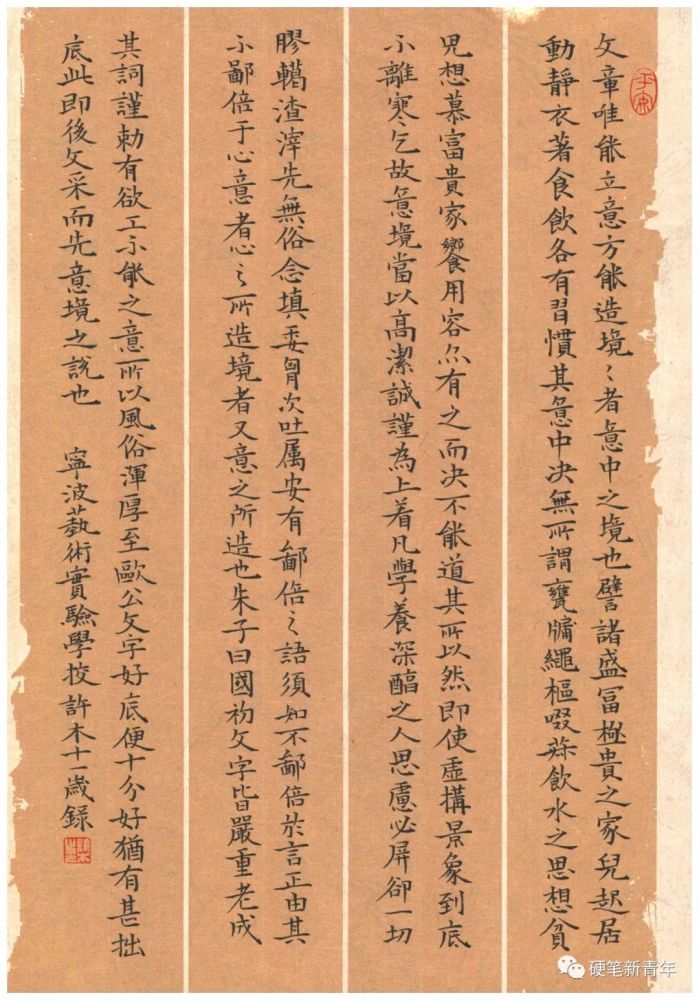 文章唯能立意方能造境〻者意中之境也譬諸盛冨極貴之家兒起居
動静衣著食飲各有習慣其意中决無所謂甕牖繩樞啜菽飲水之思想貧
兒想慕富貴家饗用容亦有之而决不能道其所以然即使虚構景象到底
不離寒乞故意境當以高潔誠謹為上着凡學養深醞之人思慮必屏卻一切
膠轕渣滓先無俗念填委胷次吐属安有鄙倍之語須知不鄙倍於言正由其
不鄙倍于心意者心之所造境者又意之所造也朱子曰國初文字皆嚴重老成
其詞謹勑有欲工不能之意所以風俗渾厚至歐公文字好底便十分好猶有甚拙
底此即後文采而先意境之說也 寧波藝術實驗學校許木十一歲錄
平安
硬笔新青年